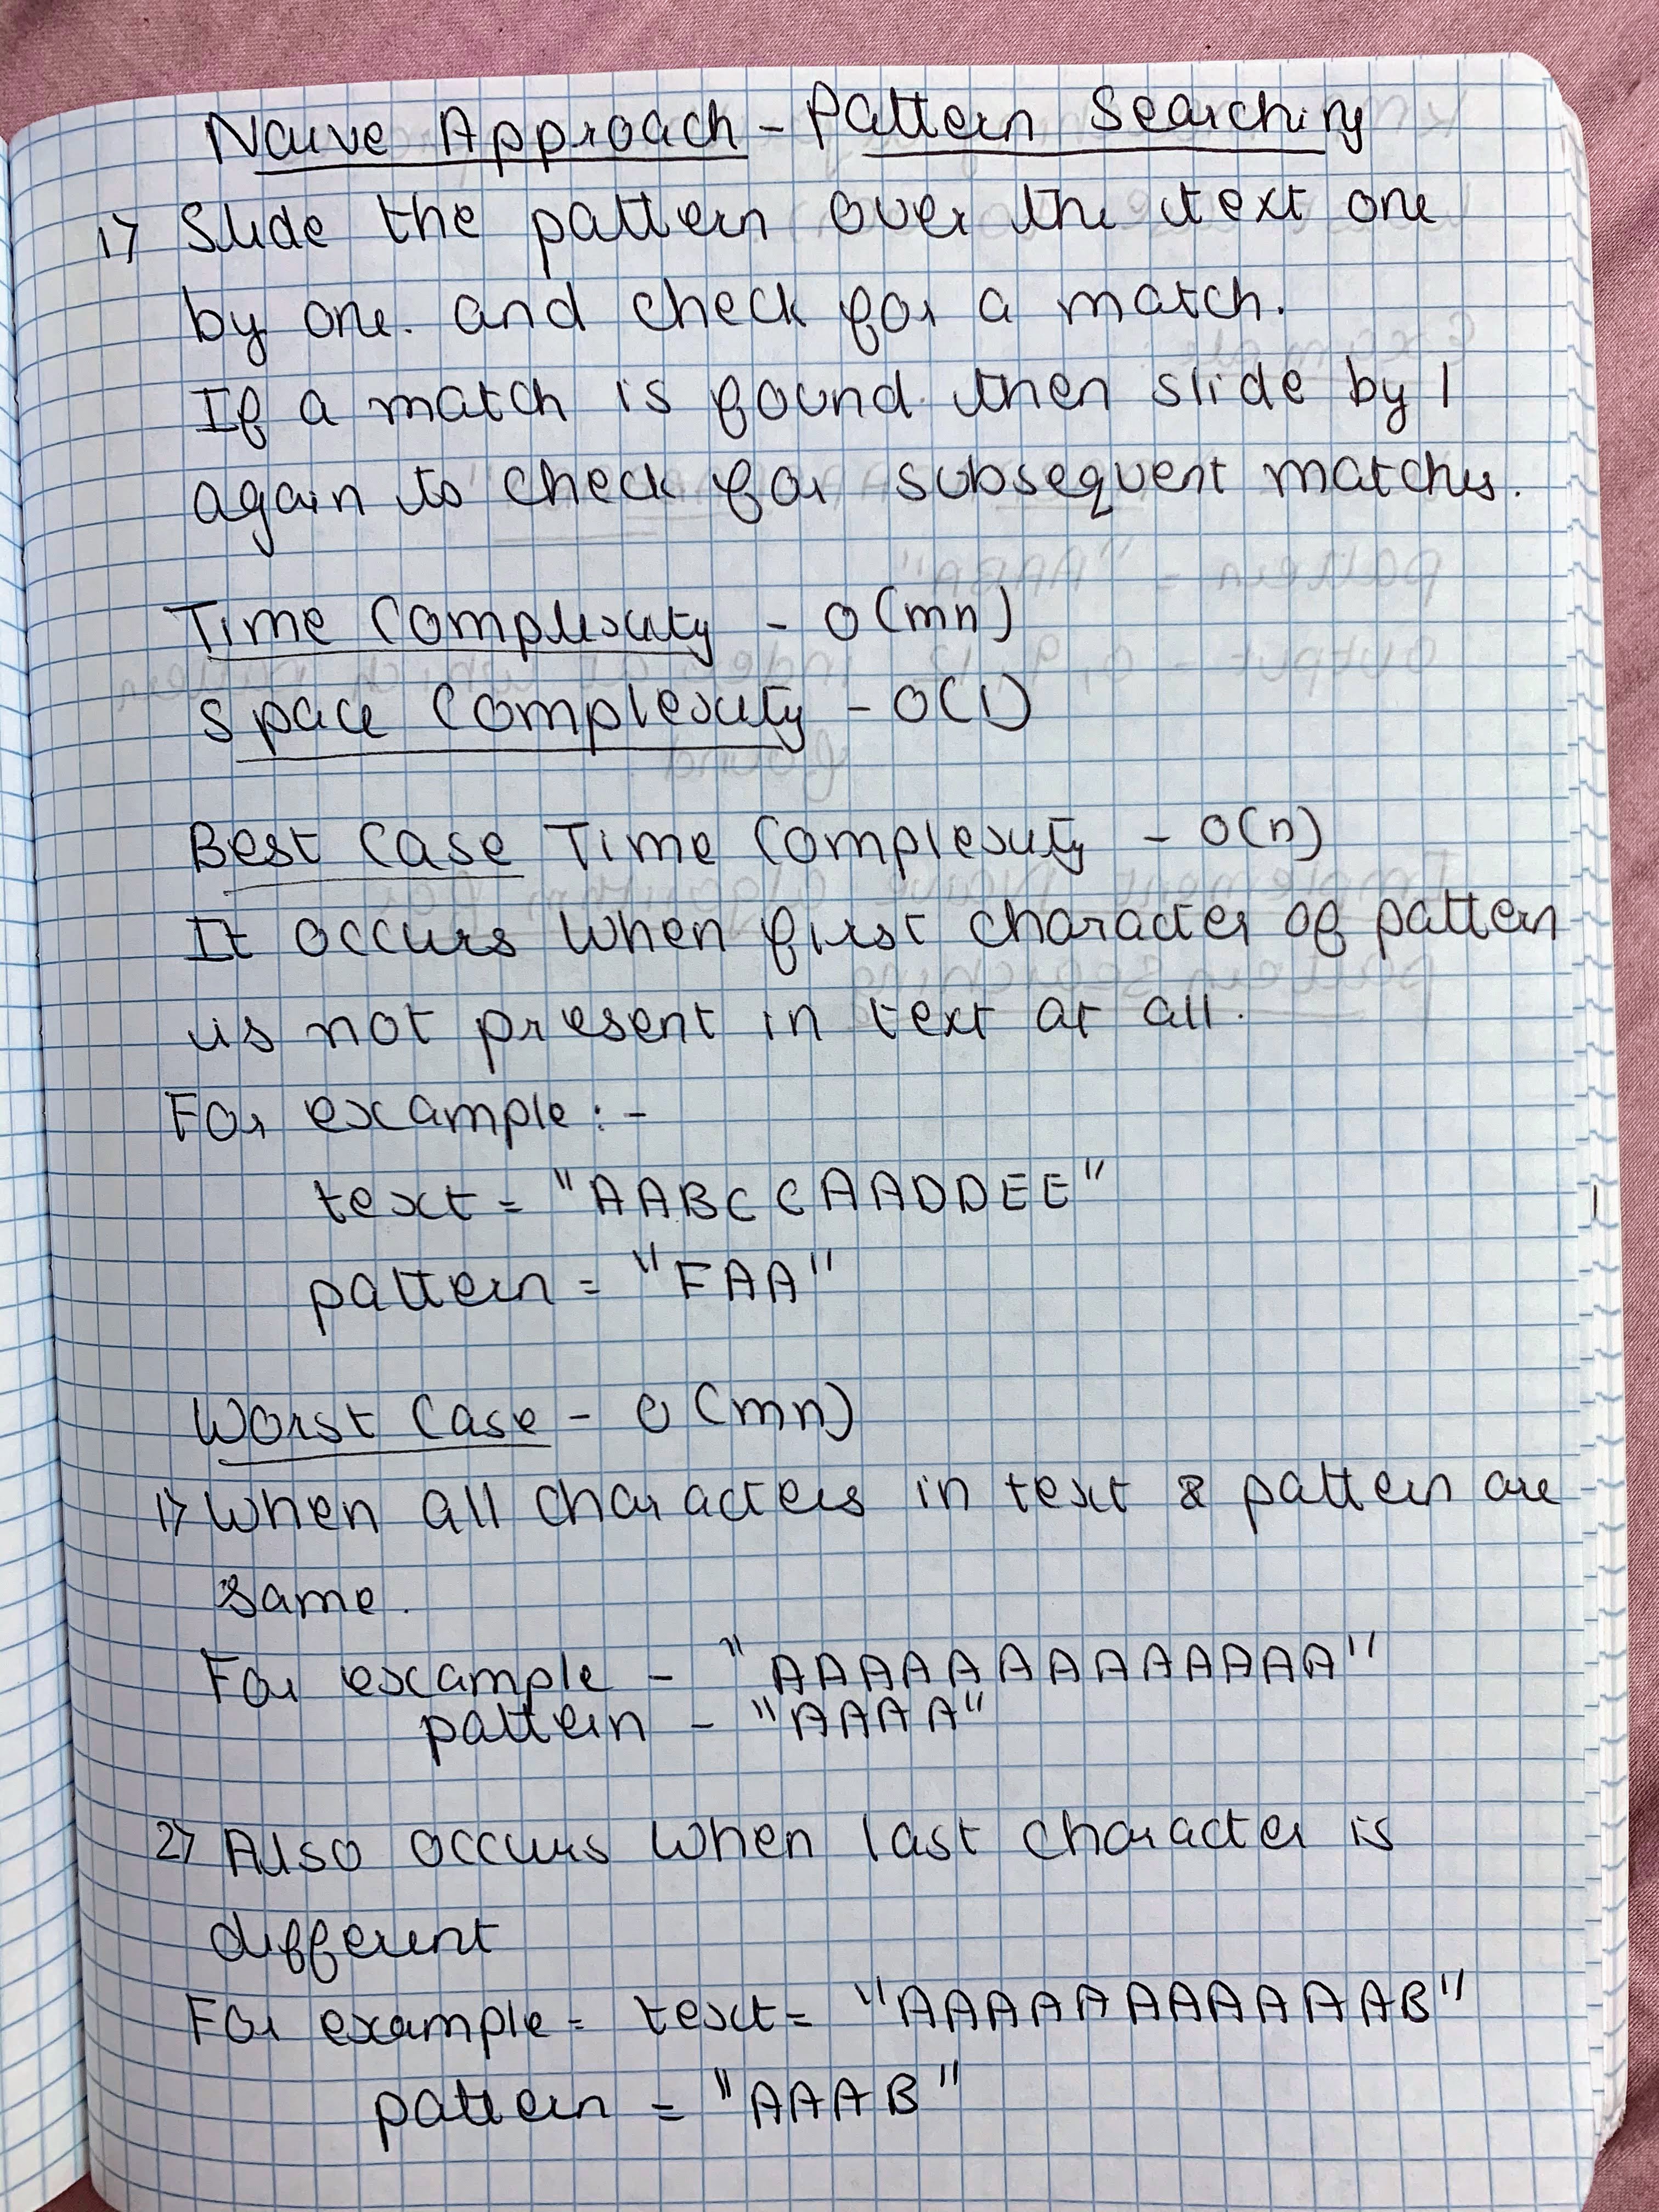 Naive Approach - Pattern Searching
1> Slide the pattern over the text one
by one. and check for a match.
If a match is found then slide by 1
again to check for subsequent matches.
Time Complexity - O(mn)
Space Complexity - O(1)
Best Case Time Complexity - O(n)
It occurs when first character of pattern
is not present in text at all.
For example:-
text = "AABCCAADDEE"
pattern = "FAA"
Worst Case - O(mn)
1> When all characters in text & pattern are
same.
For example - "AAAAAAAAAAAAA"
pattern - "AAAA"
2> Also occurs when last character is
different
For example - text = "AAAAAAAAAAAAB"
pattern = "AAAB"